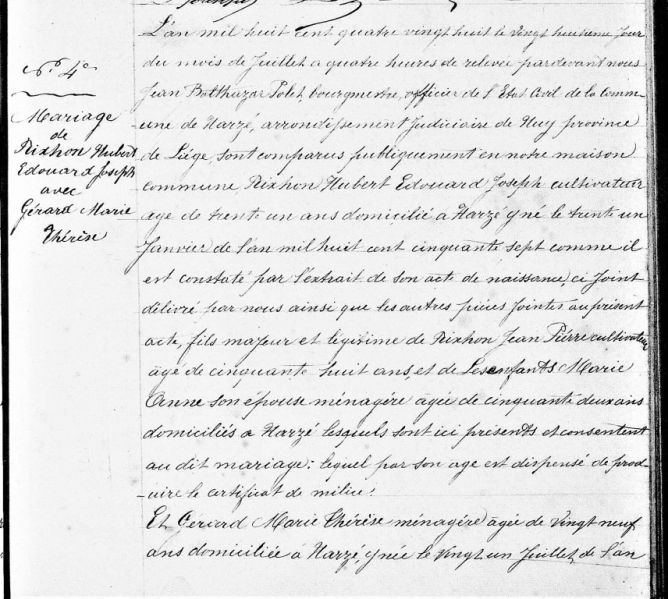 N° 4e
Mariage
de
Rixhon Hubert
Edouard Joseph
avec
Gérard Marie
Thérèse
L'an mil huit cent quatre vingt huit le vingt huitième jour
du mois de Juillet a quatre heures de relevée pardevant nous
Jean Balthazar Polet, bourgmestre, officier de l'Etat Civil de la Comm-
une de Harzé, arrondissement Judiciaire de Huy province
de Liége, sont comparus publiquement en notre maison
commune Rixhon Hubert Edouard Joseph cultivateur
age de trente un ans domicilié à Harzé y né le trente un
Janvier de l'an mil huit cent cinquante sept comme il
est constaté par l'extrait de son acte de naissance, ci Joint
délivré par nous ainsi que les autres pièces Jointes au présent
acte, fils majeur et légitime de Rixhon Jean Pierre cultivateur
agé de cinquante huit ans, et de Lesenfants Marie
Anne son épouse ménagère agée de cinquante deux ans
domiciliés à Harzé lesquels sont ici présents et consentent
au dit mariage: lequel par son age est dispensé de prod-
uire le certificat de milice.
Et Gérard Marie Thérèse ménagère agée de vingt neuf
ans domiciliée à Harzé, y née le vingt un Juillet de l'an